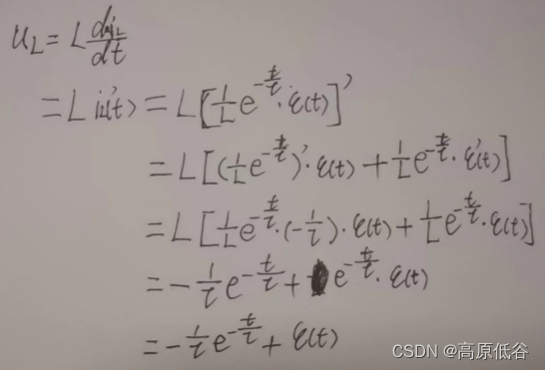 u_L = L di_L/dt
= L i_L'(t) = L[1/L e^{-t/τ}·ε(t)]'
= L[(1/L e^{-t/τ})'·ε(t) + 1/L e^{-t/τ}·ε'(t)]
= L[1/L e^{-t/τ}·(-1/τ)·ε(t) + 1/L e^{-t/τ}·ε(t)]
= -1/τ e^{-t/τ} + e^{-t/τ}·ε(t)
= -1/τ e^{-t/τ} + ε(t)
CSDN @高原低谷